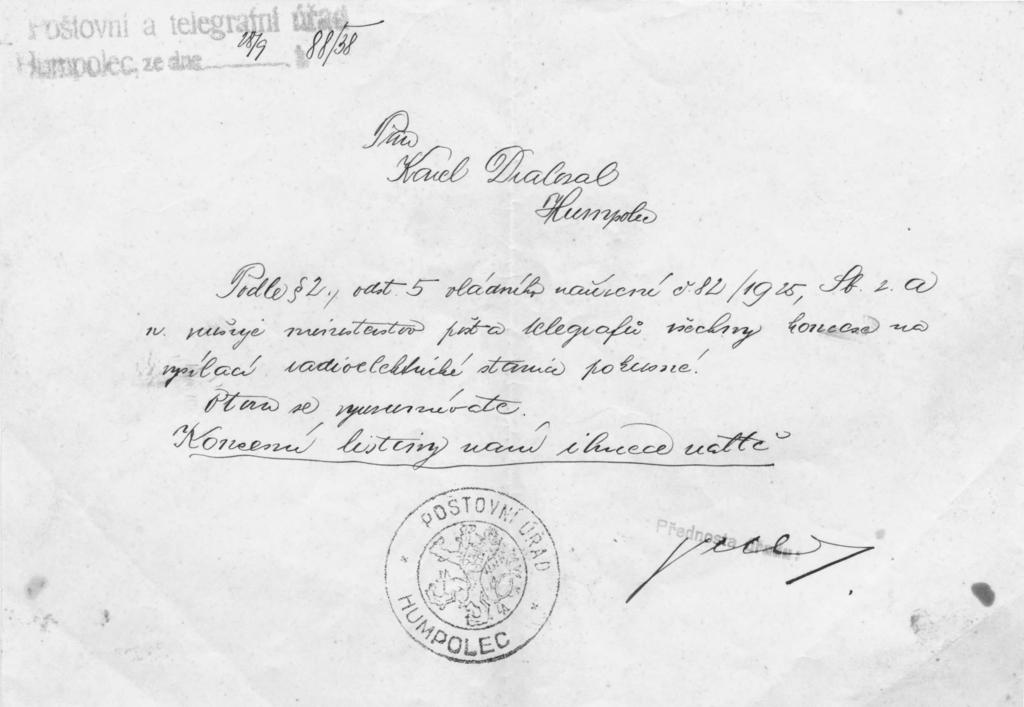 Poštovní a telegrafní úřad
Humpolec, ze dne 28/9 88/38
Pan
Karel
Humpolec
Podle § 2., odst. 5 vládního nařízení č. 82/1925, Sb. z. a
n. ruší ministerstvo pošt a telegrafů všechny koncese na
vysílací radioelektrické stanice pokusné.
O tom se vyrozumíváte.
Koncesní listiny nám ihned vraťte
POŠTOVNÍ ÚŘAD
HUMPOLEC
Přednosta úřadu: